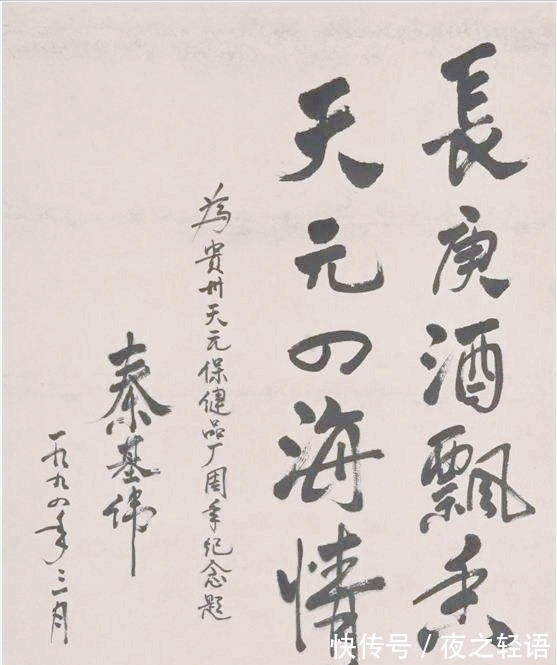 長庚酒飘香
天元四海情
為貴州天元保健品厂周年纪念题
秦基伟
一九九四年三月
快传号/夜之轻语